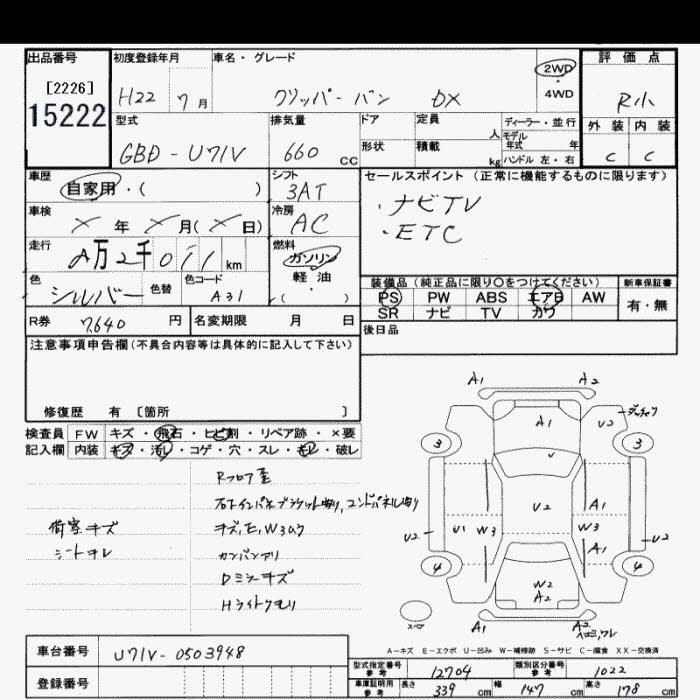 出品番号 初度登録年月 車名・グレード 評価点
[2226] H22 7月 クリッパーバン DX 2WD・4WD R小
15222
型式 排気量 ドア 定員 人 ディーラー・並行 外装 内装
GBD-U71V 660 cc 形状 積載 kg モデル年式 年 ハンドル 左・右 C C
車歴 シフト セールスポイント (正常に機能するものに限ります)
自家用・( ) 3AT ・ナビTV
車検 冷房 ・ETC
× 年 × 月(× 日) AC
走行 燃料
万2千011 km ガソリン・軽油
色 色替 色コード ( )
シルバー A31
装備品(純正品に限り○をつけてください) 新車保証書
PS PW ABS エアB AW 有・無
SR ナビ TV カワ
R券 7,640 円 名変期限 月 日 後日品
注意事項申告欄(不具合内容等は具体的に記入して下さい)
修復歴 有 [箇所 ]
検査員 FW キズ・飛石・ヒビ割・リペア跡・×要
記入欄 内装 キズ・汚レ・コゲ・穴・スレ・モレ・破レ
Rフロア歪
荷室キズ
シートヨレ
カンバンアリ
Dミラーキズ
Hライトクモリ
A1 A2
A1 U2
3 3
U2
A1
U2 U1 W3 W3 U2
A1
4 4
W2
A2
スペア A1 A2
A-キズ E-エクボ U-凹み W-補修跡 S-サビ C-腐食 XX-交換済
車台番号 U71V-0503948
登録番号
型式指定番号 参考 12704 類別区分番号 参考 1022
車庫証明用 参考 長さ 339 cm 幅 147 cm 高さ 178 cm